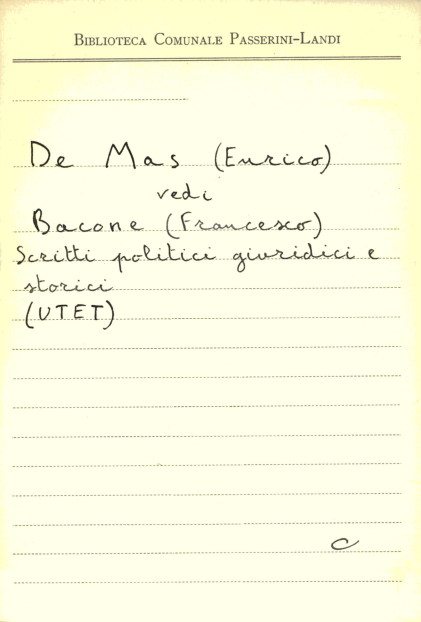 Biblioteca Comunale Passerini-Landi
De Mas (Enrico)
vedi
Bacone (Francesco)
Scritti politici giuridici e
storici
(UTET)
C